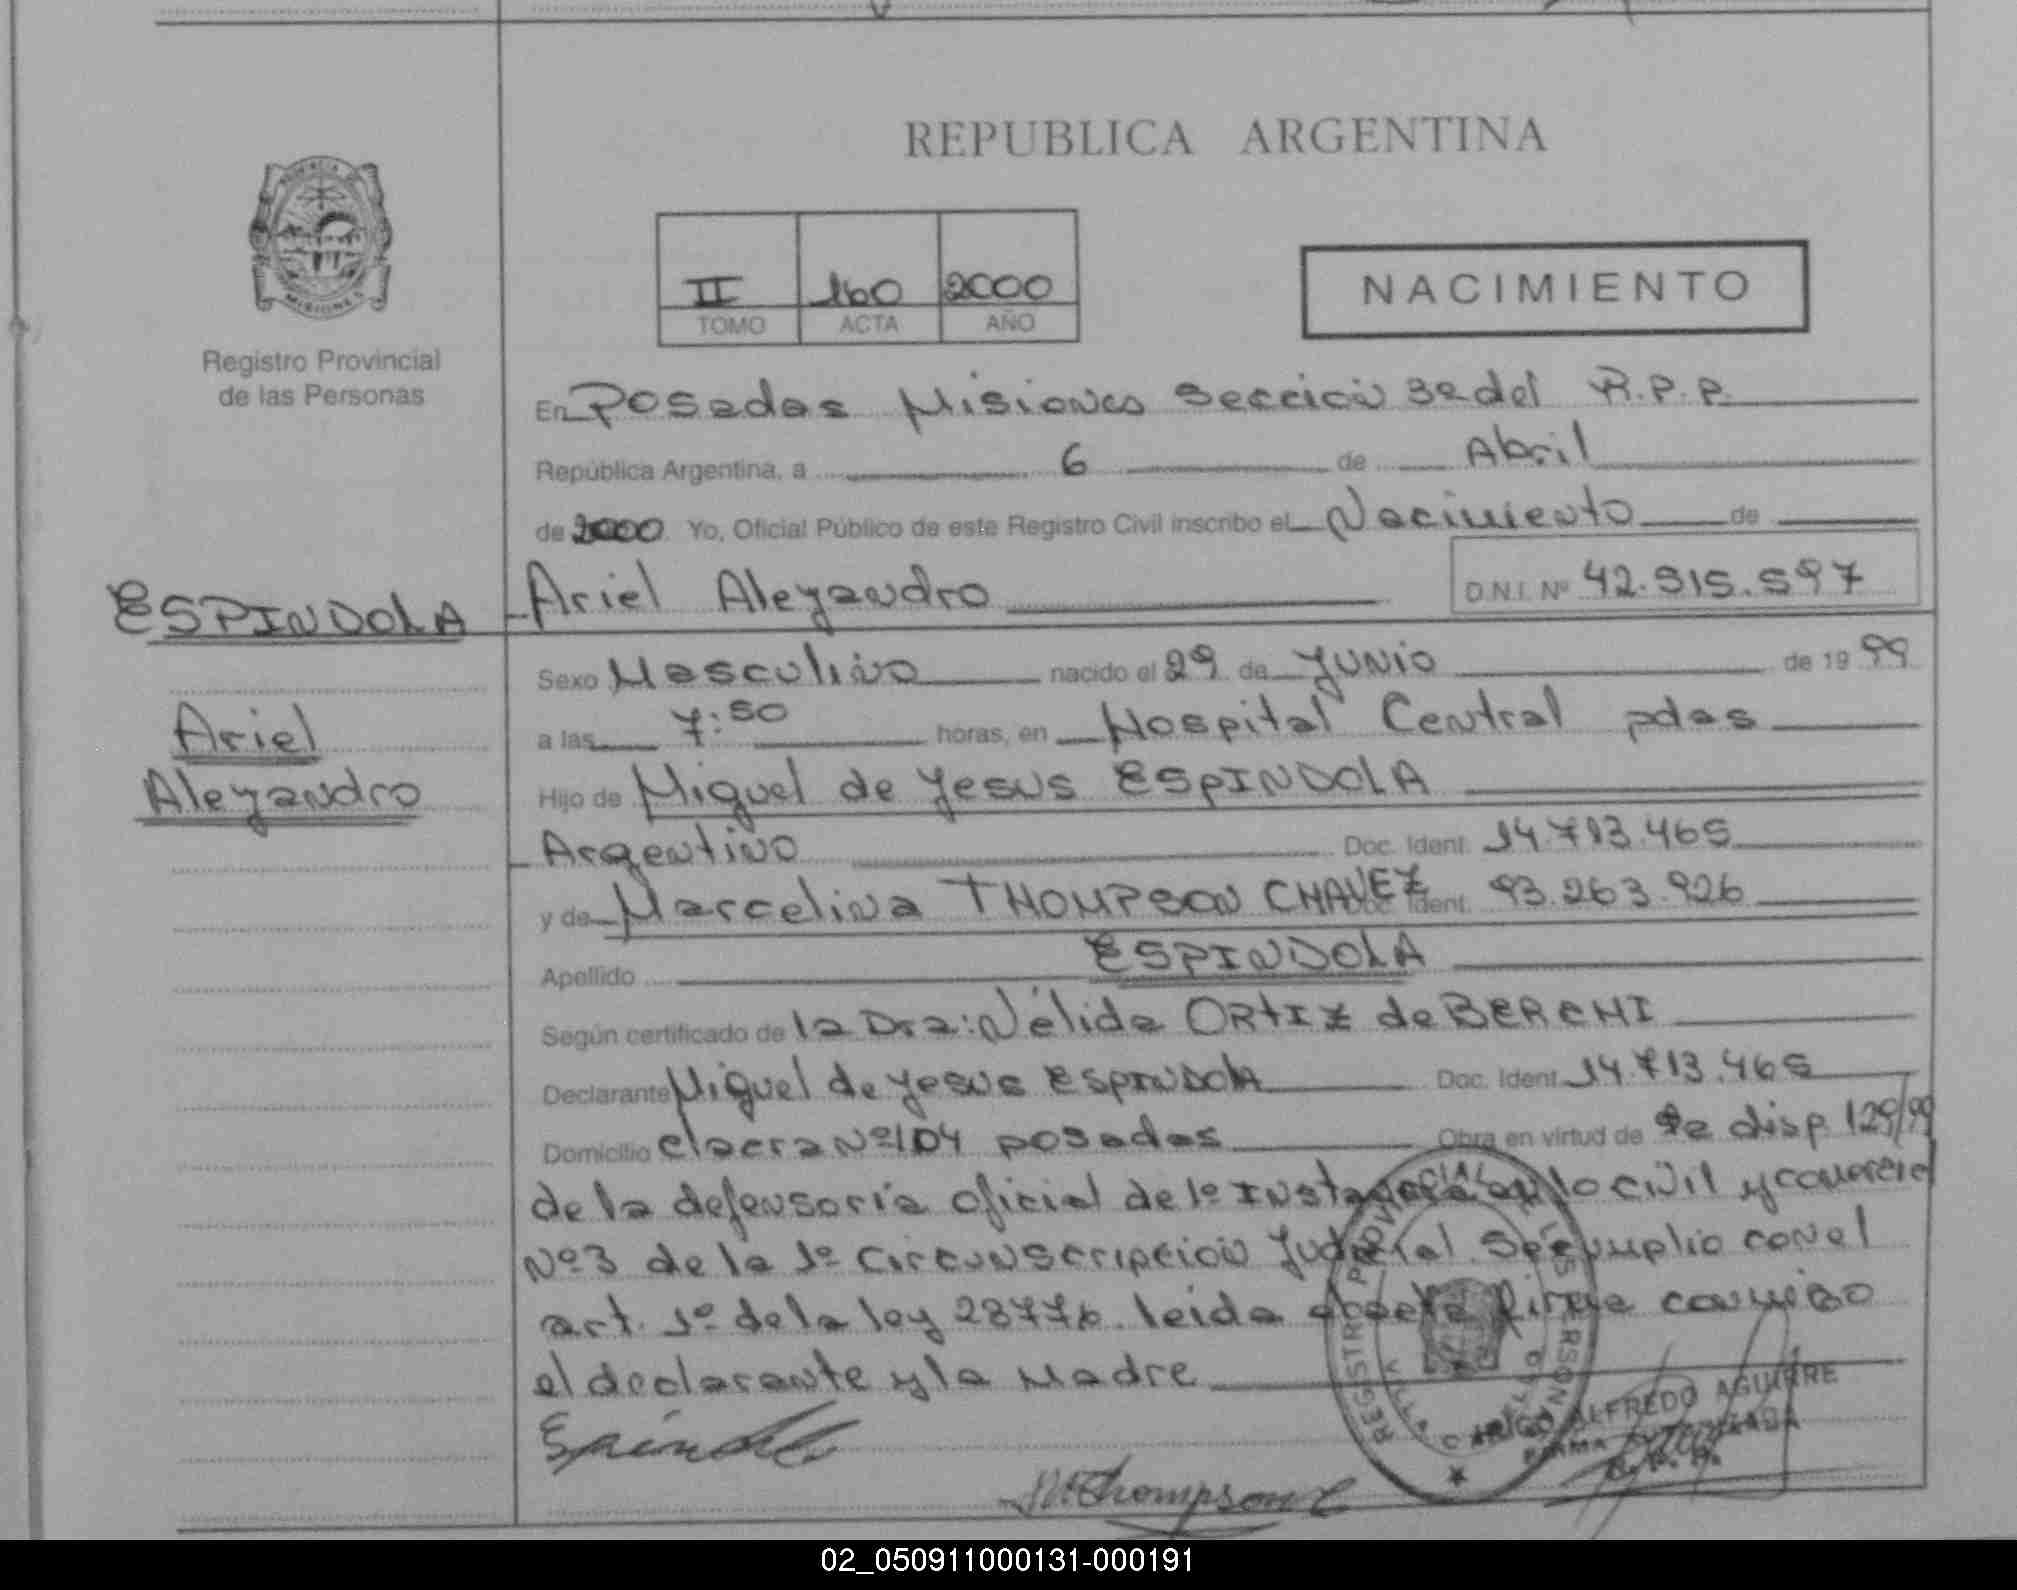 REPUBLICA ARGENTINA
PROVINCIA DE
MISIONES
Registro Provincial
de las Personas
II 160 2000
TOMO ACTA AÑO
NACIMIENTO
En Posadas Misiones Sección 3a del R.P.P.
República Argentina, a 6 de Abril
de 2000 Yo, Oficial Público de este Registro Civil inscribo el Nacimiento de
ESPINDOLA
Ariel Aleyandro D.N.I. Nº 42.515.597
Sexo Masculino nacido el 29 de Junio de 19 99
Ariel
Aleyandro
a las 7:50 horas, en Hospital Central pdas
Hijo de Miguel de Jesus ESPINDOLA
Argentino Doc. Ident. 14.713.465
y de Marcelina THOMPSON CHAVEZ Doc. Ident. 93.263.926
Apellido ESPINDOLA
Según certificado de la Dra: Nélida ORTIZ de BERCHI
Declarante Miguel de Jesus ESPINDOLA Doc. Ident. 14.713.465
Domicilio Clacra Nº 104 posadas Obra en virtud de disp. 129/99
de la defensoría oficial de 1º Instancia en lo civil y comercial
Nº 3 de la 1º Circunscripción Judicial. Se cumplio con el
art. 1º de la ley 23776. leida acta firma conmigo
el declarante y la Madre
Espindola
M Thompson C
REGISTRO PROVINCIAL DE LAS PERSONAS
ALFREDO AGUIRRE
FIRMA AUTORIZADA
R. P. P.
02_050911000131-000191